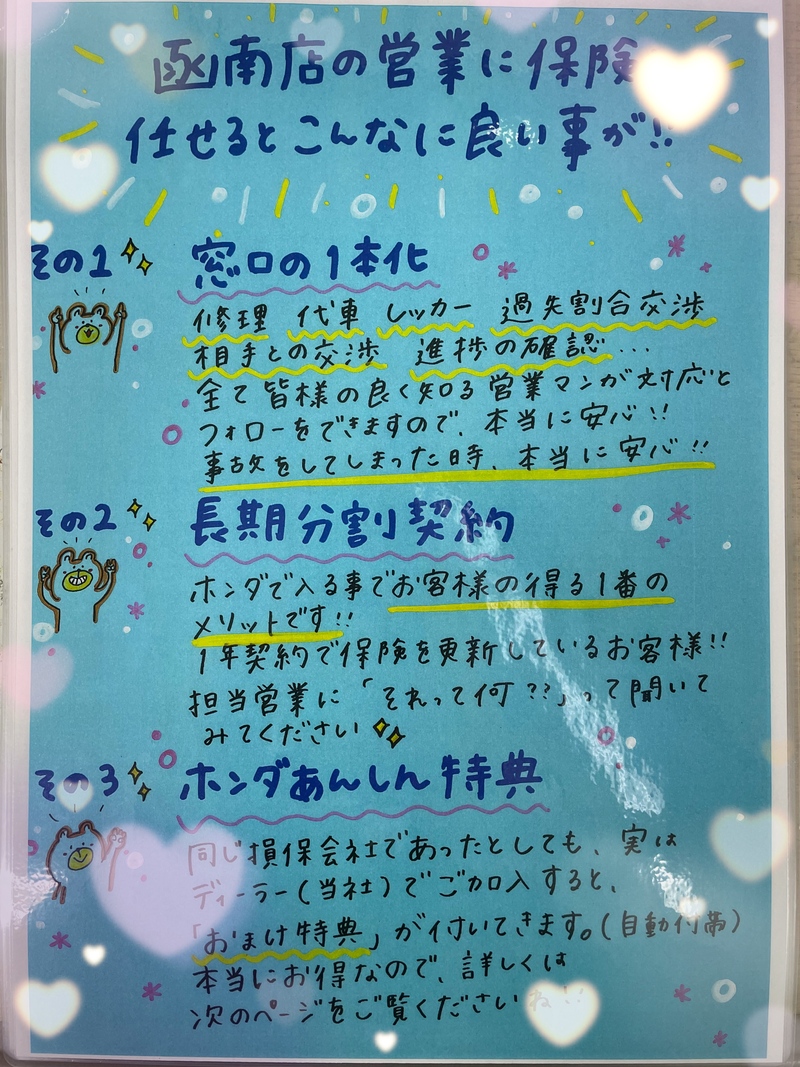 函南店の営業に保険
任せるとこんなに良い事が!!
その1
窓口の1本化
修理 代車 レッカー 過失割合交渉
相手との交渉 進捗の確認...
全て皆様の良く知る営業マンが対応と
フォローをできますので、本当に安心!!
事故をしてしまった時、本当に安心!!
その2
長期分割契約
ホンダで入る事でお客様の得る1番の
メリットです!!
1年契約で保険を更新しているお客様!!
担当営業に「それって何??」って聞いて
みてください
その3
ホンダあんしん特典
同じ損保会社であったとしても、実は
ディーラー(当社)でご加入すると、
「おまけ特典」が付いてきます。(自動付帯)
本当にお得なので、詳しくは
次のページをご覧くださいね!!